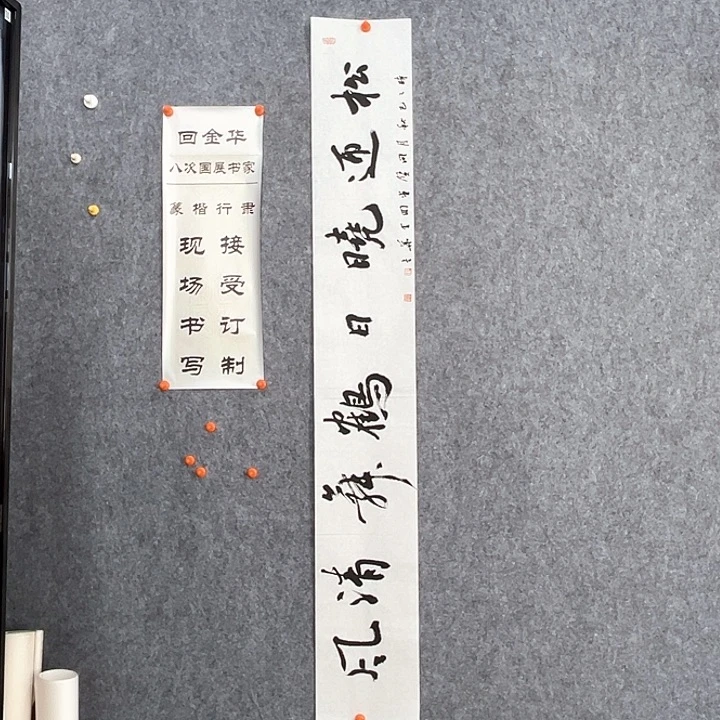 回金华
八次国展书家
篆楷行隶
接受订制
现场书写
松迎晓日鹤舞清风